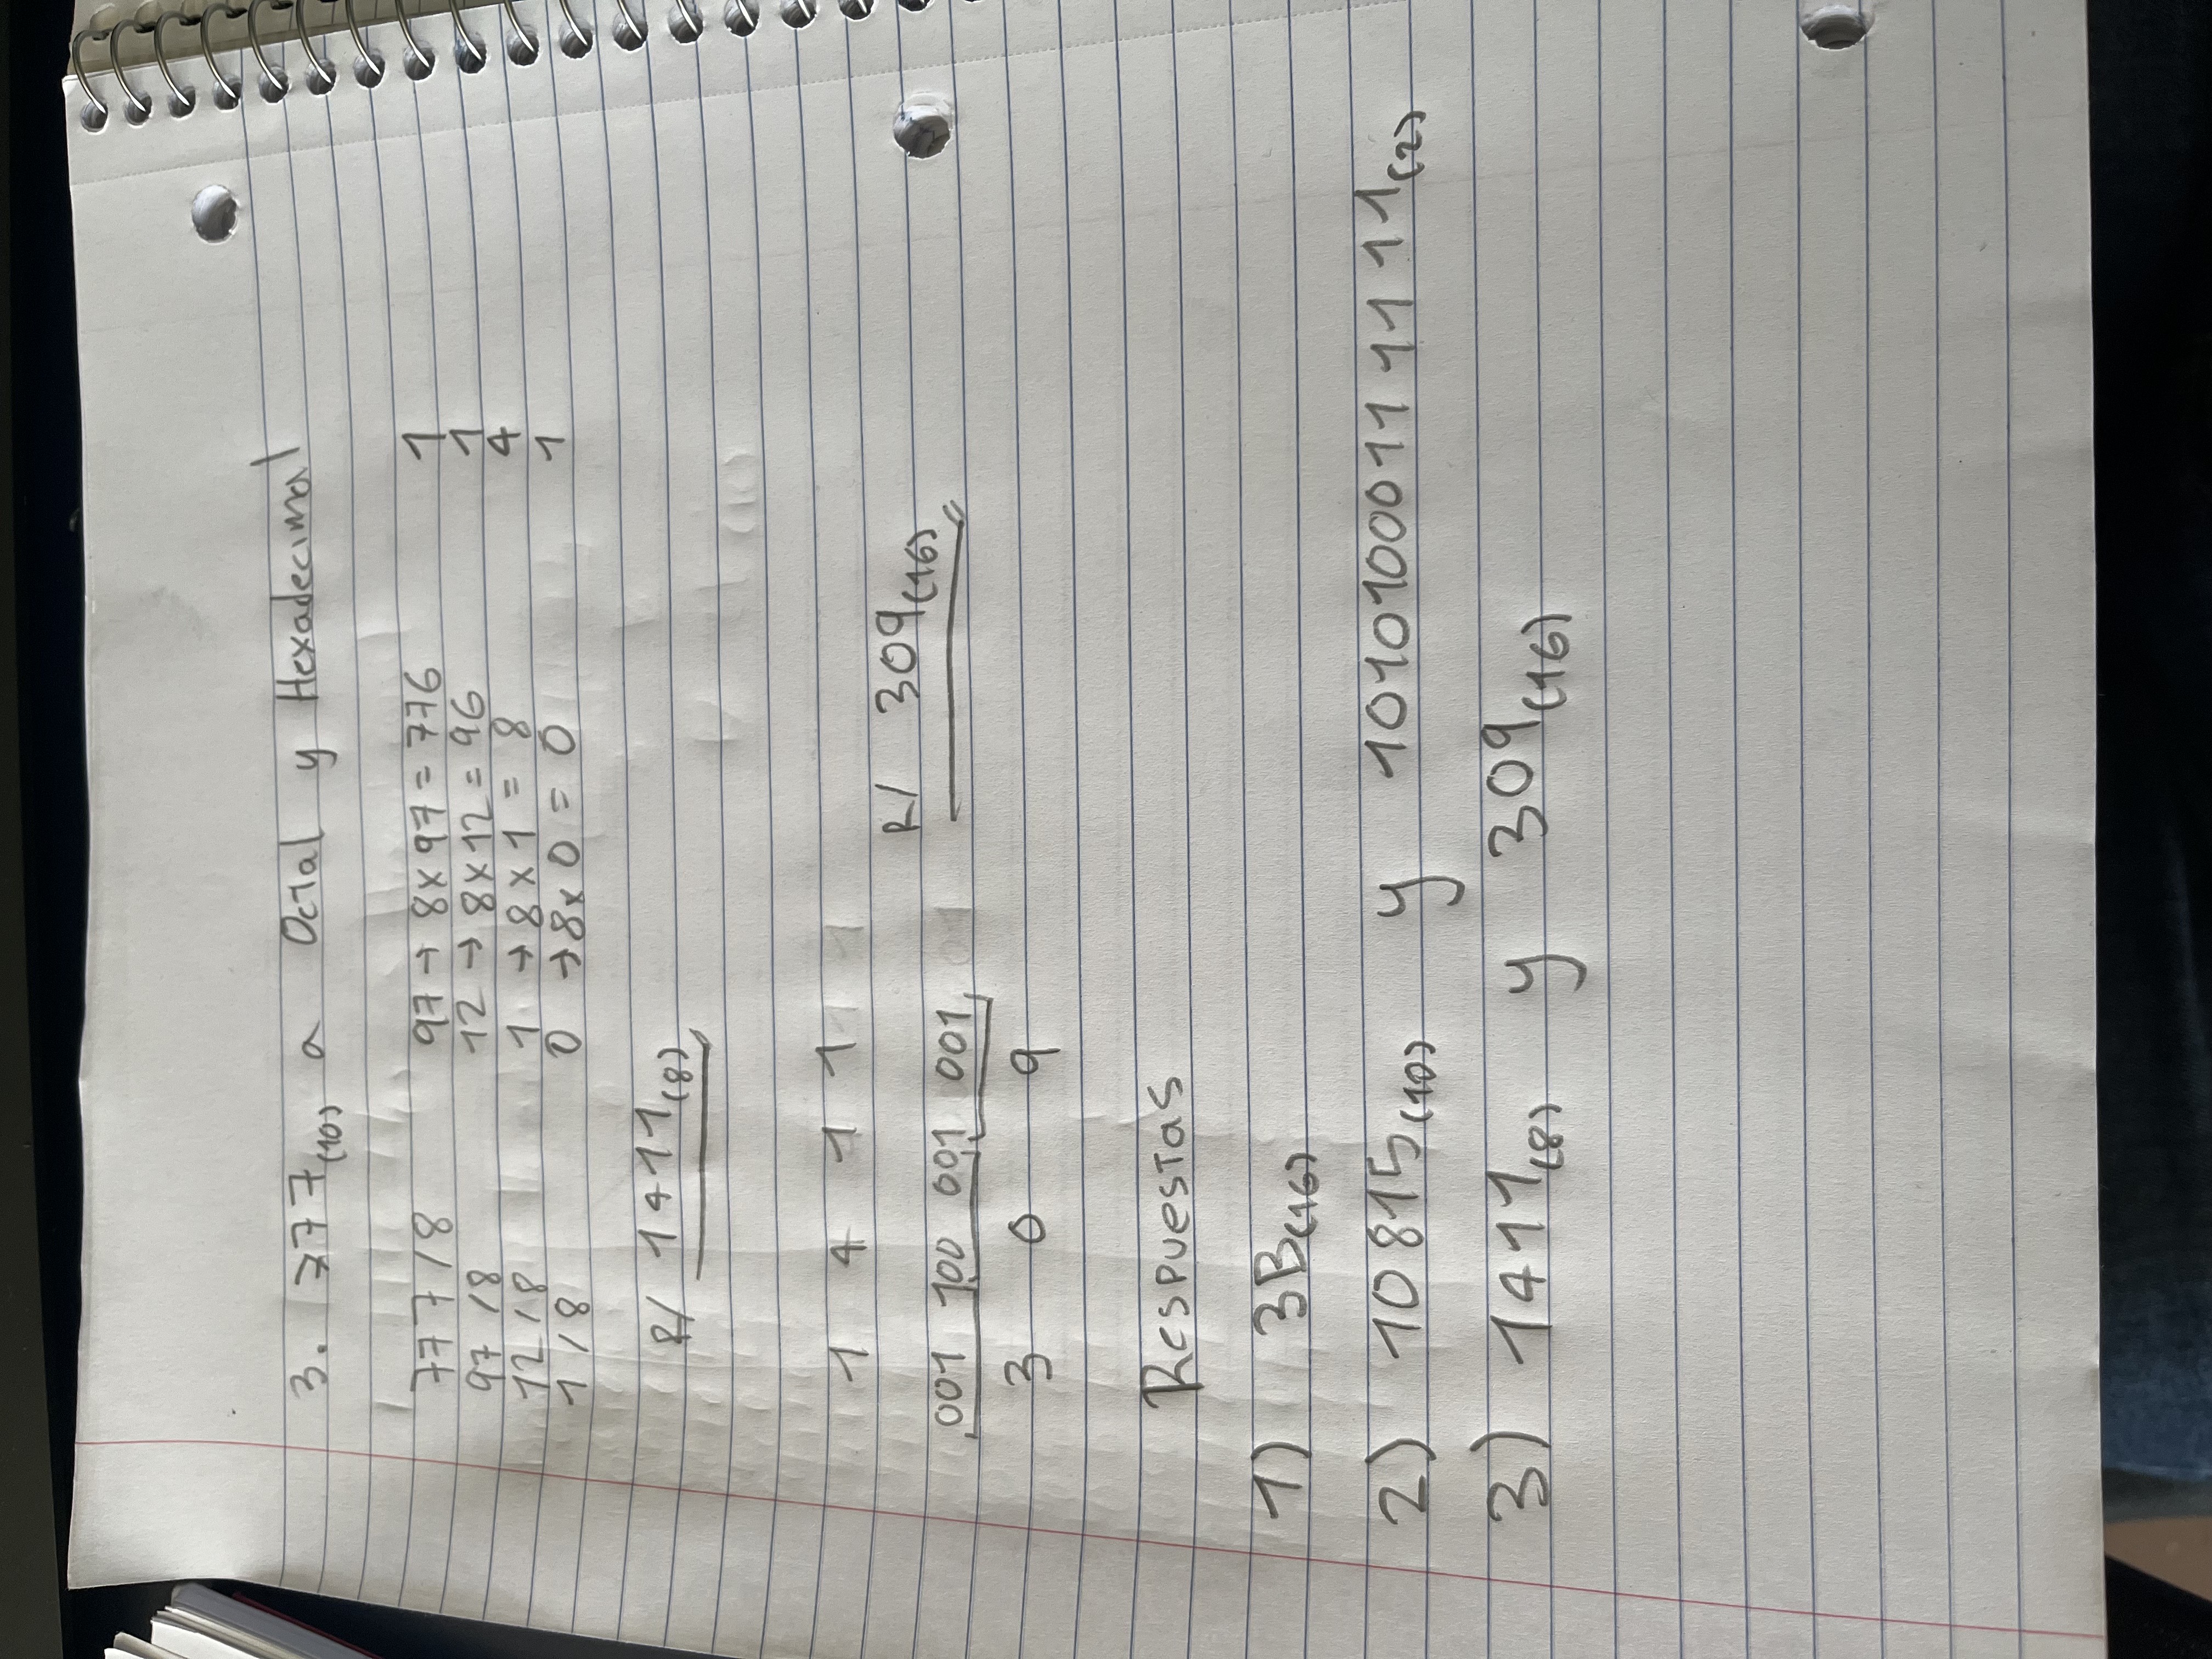 3. 777(10) a Octal y Hexadecimal
777/8 97 → 8x97 = 776 1
97/8 12 → 8x12 = 96 1
12/8 1 → 8x1 = 8 4
1/8 0 → 8x0 = 0 1
R/ 1411(8)
1 4 1 1
R/ 309(16)
001 100 001 001
3 0 9
Respuestas
1) 3B(16)
2) 10815(10) y 10101000111111(2)
3) 1411(8) y 309(16)